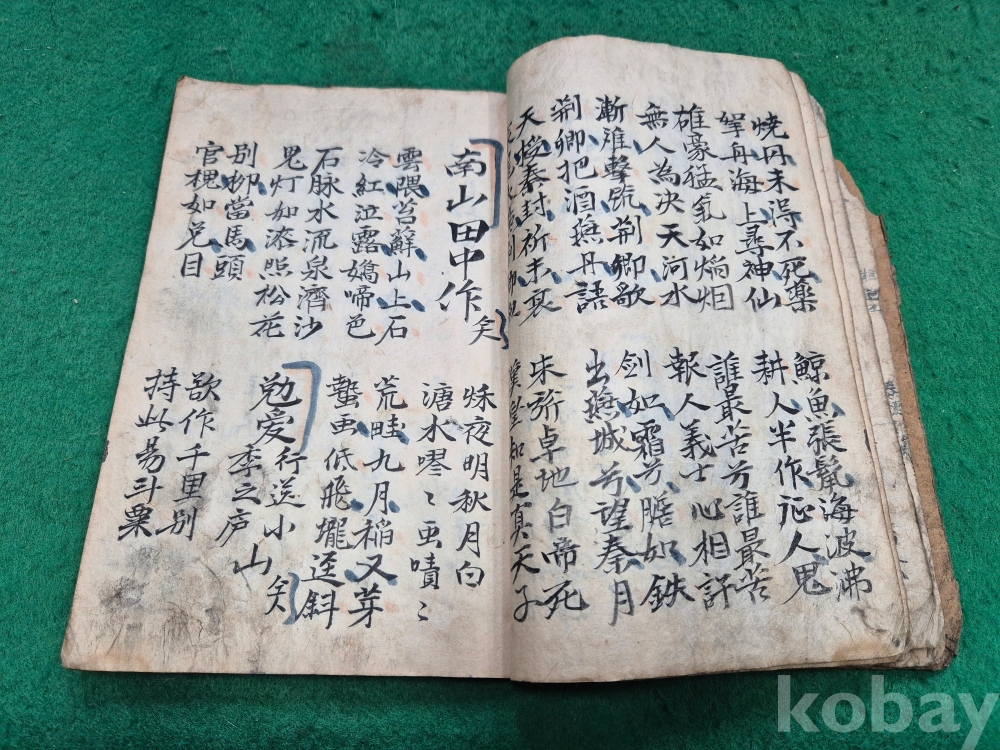 燒丹未淂不死藥
拏舟海上尋神仙
鯨魚張鬣海波沸
耕人半作征人鬼
雄豪猛氣如焰烟
無人為决天河水
誰最苦兮誰最苦
報人義士心相許
漸離擊筑荆卿歌
荆卿把酒燕丹語
剑如霜兮膽如鉄
出燕城兮望秦月
天授秦封祚未衮
朱旂卓地白帝死
漢皇知是真天子
南山田中作 矣
秌夜明秋月白
溏水嘐〻虫嘖〻
雲隈苔蘚山上石
冷紅泣露嬌啼色
荒畦九月稲叉芽
蟄虫低飛壠逕斜
石脉水流泉濟沙
鬼灯如漆照松花
勉爱行送小山 矣
李之庐
別柳當馬頭
官槐如兎目
欲作千里別
持此易斗粟
kobay